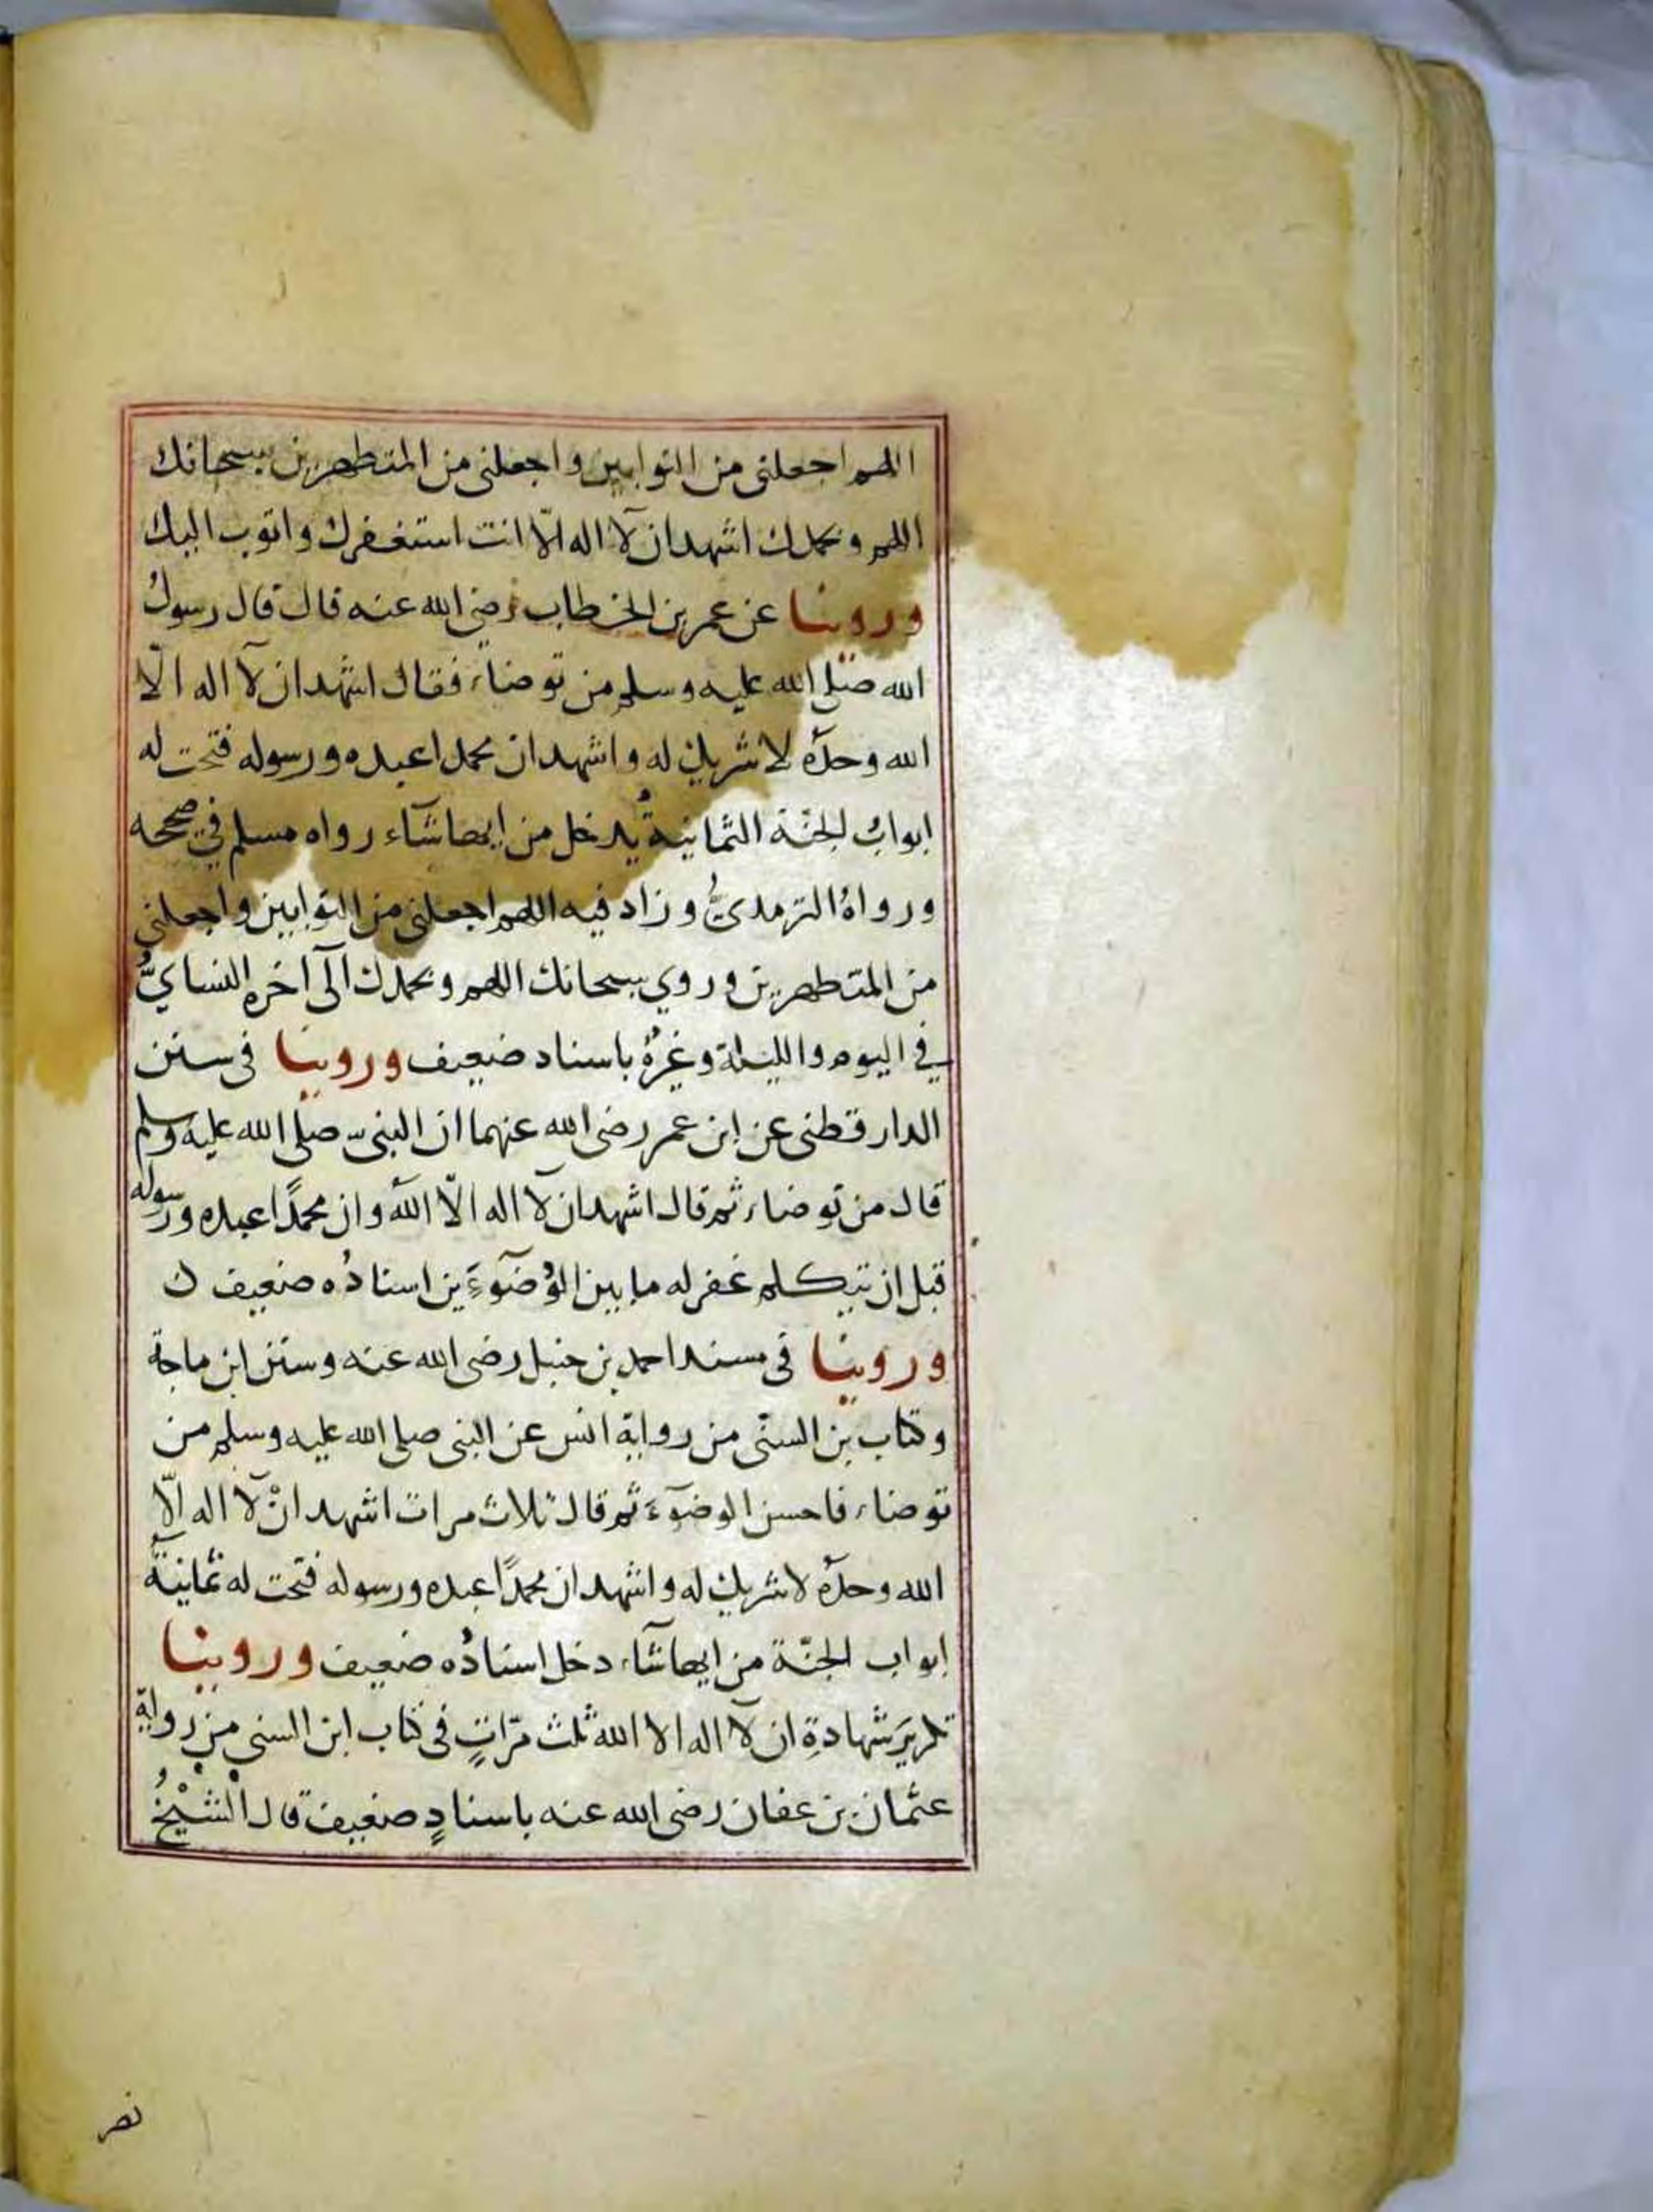 اللهم اجعلنى من التوابين واجعلنى من المتطهرين سبحانك
اللهم وبحمدك اشهد ان لا اله الّا انت استغفرك واتوب اليك
وروينا عن عمر بن الخطاب رضى الله عنه قال قال رسولُ
الله صلى الله عليه وسلم من توضاء فقال اشهد ان لا اله الّا
الله وحدَه لا شريك له واشهد ان محمدا عبده ورسوله فتحت له
ابوابُ الجنّة الثمانيةُ يدخل من ايها شآء رواه مسلم في صحيحه
ورواهُ الترمدىُّ وزاد فيه اللهم اجعلنى من التوابين واجعلنى
من المتطهرين وروي سبحانك اللهم وبحمدك الى آخرِه النسايُّ
في اليوم والليلة وغيرُهُ باسناد ضعيف وروينا فى سنن
الدارقطنى عن ابن عمر رضى الله عنهما ان النبى صلى الله عليه وسلم
قال من توضاء ثم قال اشهد ان لا اله الّا الله وان محمدًا عبده ورسوله
قبل ان يتكلم غفر له ما بين الوُضوءَين اسنادُه ضعيف ن
وروينا فى مسند احمد بن حنبل رضى الله عنه وسنن ابن ماجة
وكتاب بن السنّى من رواية انس عن النبى صلى الله عليه وسلم من
توضاء فاحسن الوضوٓءَ ثم قال ثلاث مرات اشهد انْ لا اله الّا
الله وحدَه لا شريك له واشهد ان محمدًا عبده ورسوله فتحت له ثمانيةُ
ابواب الجنّة من ايها شآء دخل اسنادُه ضعيف وروينا
تكريرَ شهادةِ ان لا اله الا الله ثلث مرّاتٍ فى كتاب ابن السنى من رواية
عثمان بن عفان رضى الله عنه باسنادٍ ضعيف قال الشيْخُ
نصر